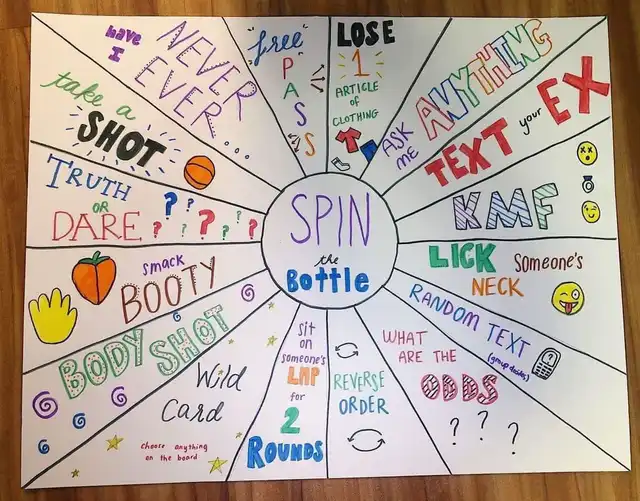 SPIN
the
Bottle
free
PASS
LOSE
1
ARTICLE
OF
CLOTHING
ASK
ME
ANYTHING
TEXT your EX
KMF
LICK someone's
NECK
RANDOM TEXT
(group decides)
WHAT
ARE THE
ODDS
? ? ?
REVERSE
ORDER
sit
on
someone's
LAP
for
2
ROUNDS
Wild
Card
choose anything
on the board
BODY SHOT
smack
BOOTY
TRUTH
OR
DARE
? ? ? ? ? ?
take a
SHOT
have
I
NEVER
EVER...